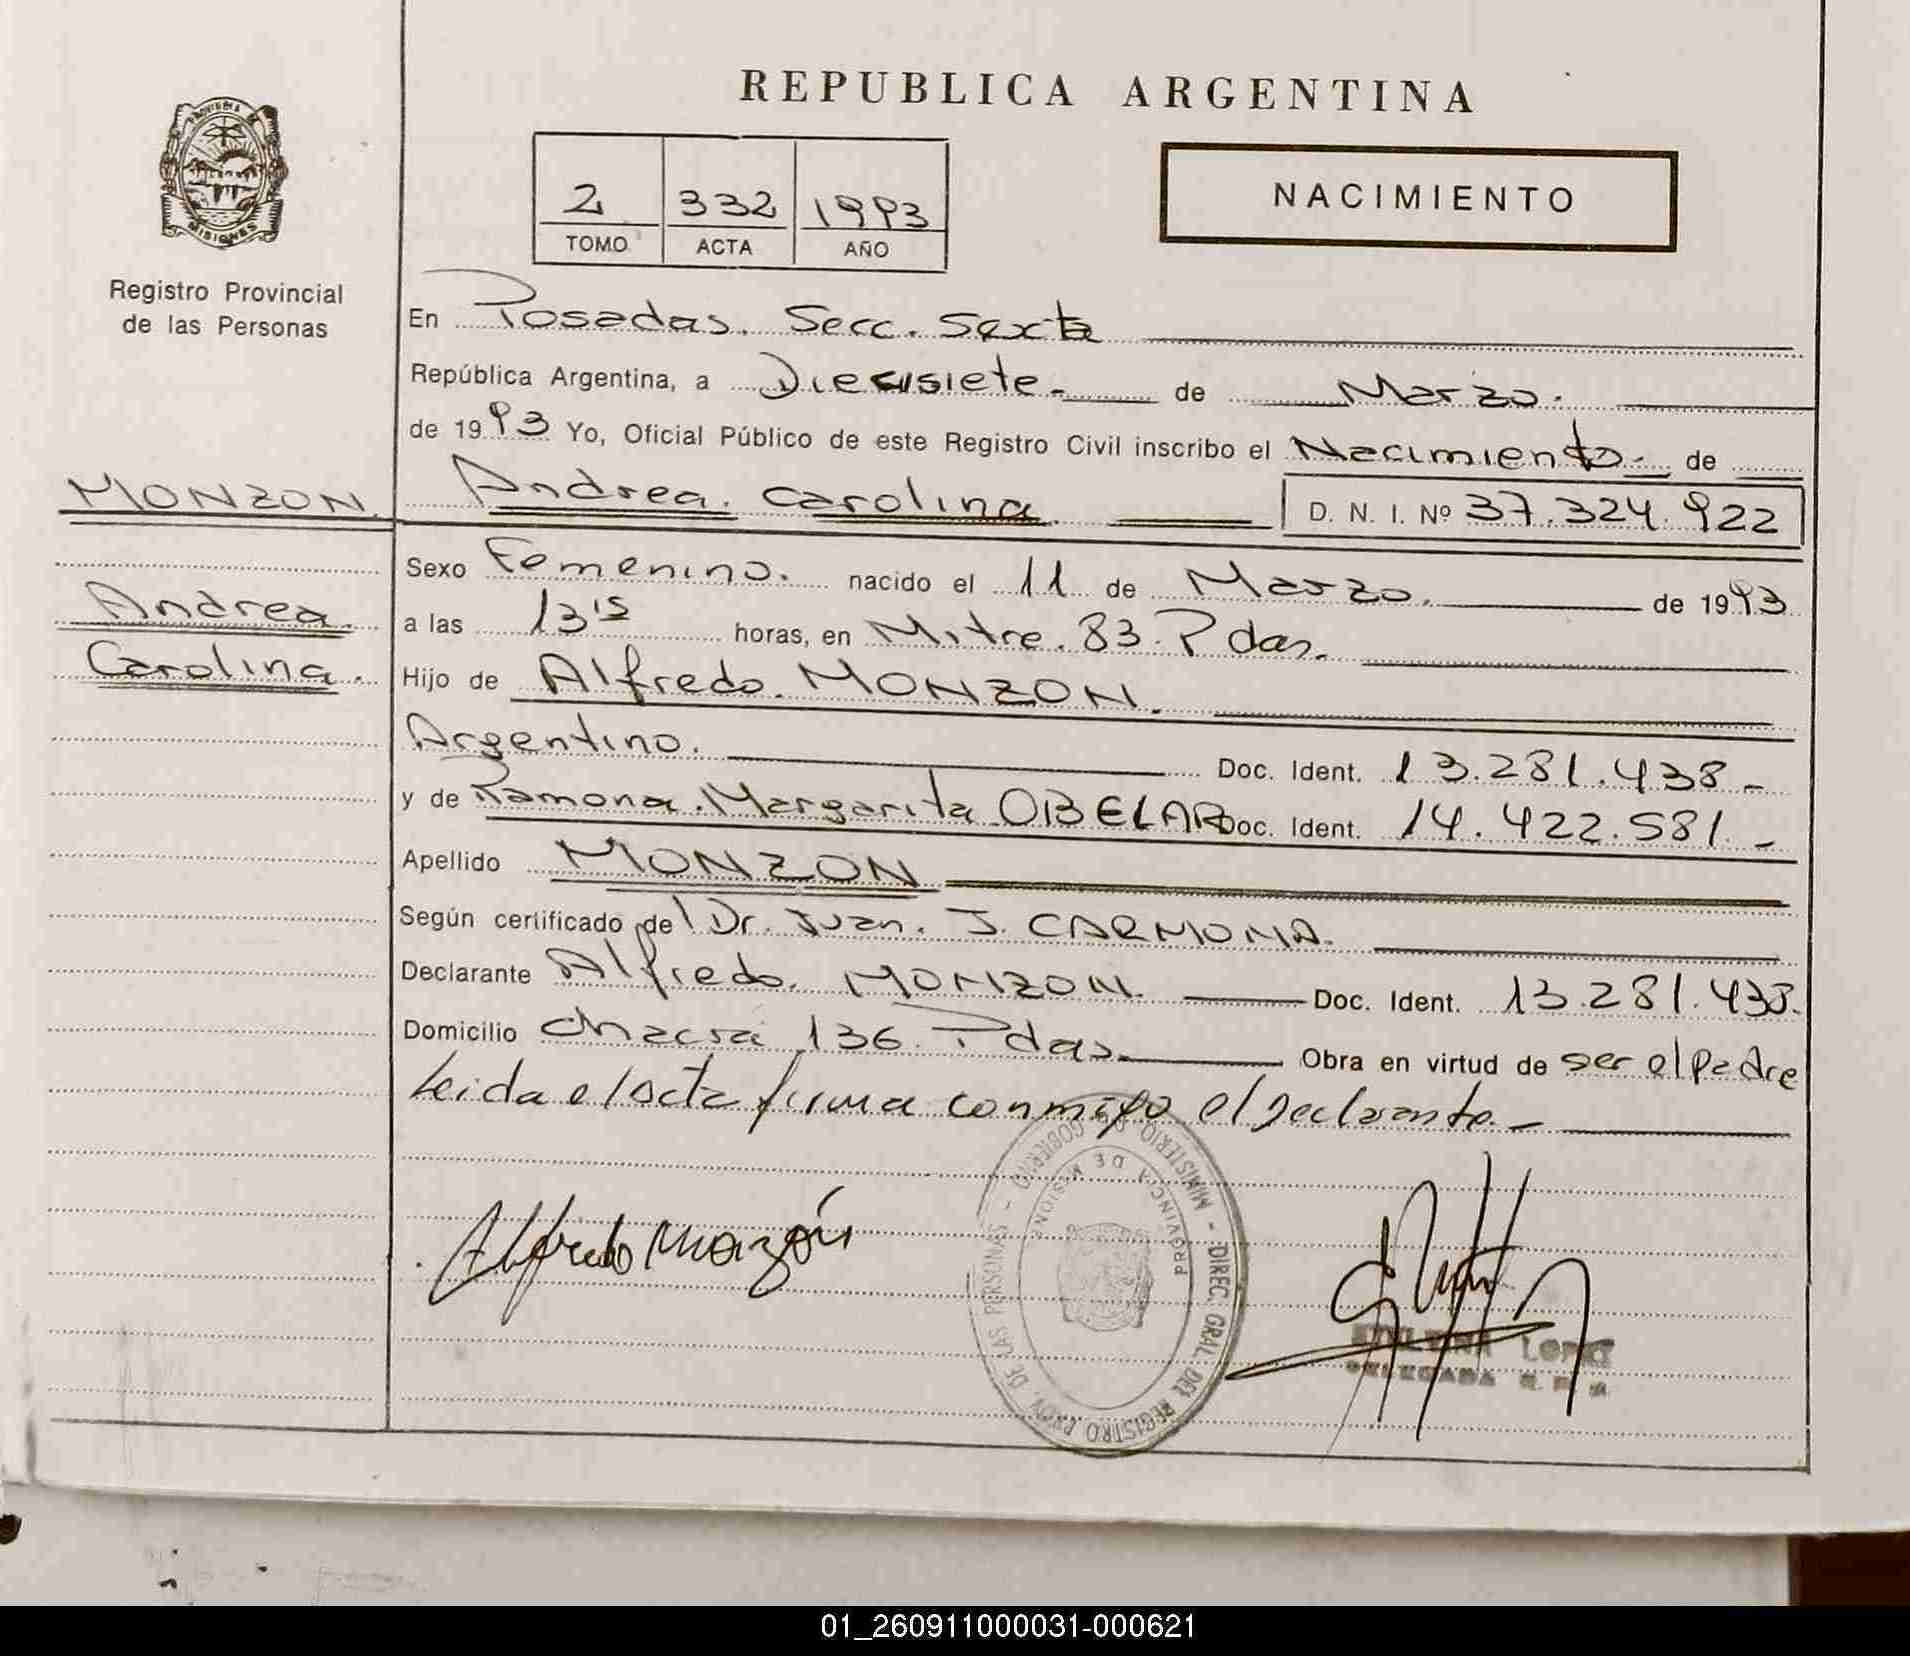 REPUBLICA ARGENTINA
PROVINCIA
MISIONES
Registro Provincial
de las Personas
2 332 1993
TOMO ACTA AÑO
NACIMIENTO
En Posadas. Secc. Sexta
República Argentina, a Diecisiete- de Marzo.
de 1993 Yo, Oficial Público de este Registro Civil inscribo el Nacimiento- de
MONZON. Andrea. Carolina. D. N. I. Nº 37.324.922
Sexo Femenino. nacido el 11 de Marzo. de 1993
Andrea.
a las 13 15 horas, en Mitre. 83. Pdas.
Carolina.
Hijo de Alfredo. MONZON.
Argentino. Doc. Ident. 13.281.438-
y de Ramona. Margarita OBELAR Doc. Ident. 14.422.581.-
Apellido MONZON
Según certificado del Dr. Juan. J. CARMONA.
Declarante Alfredo. MONZON. Doc. Ident. 13.281.438.
Domicilio chacra 136. Pdas. Obra en virtud de ser el padre
Leida el acta firma conmigo el declarante.-
Alfredo Monzón
MINISTERIO DE GOBIERNO - DIREC. GRAL. DEL REGISTRO PROV. DE LAS PERSONAS -
PROVINCIA DE MISIONES
Lopez
DELEGADA
01_260911000031-000621